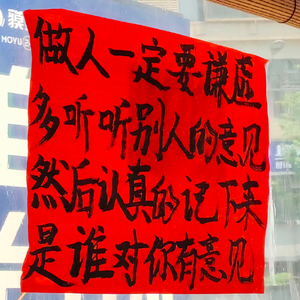 做人一定要谦虚
多听听别人的意见
然后认真的记下来
是谁对你有意见
MOYU